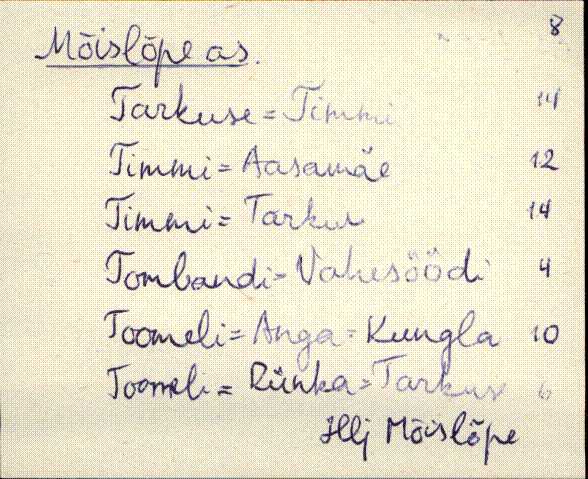 8
Mõislõpe as.
Tarkuse = Timmi 14
Timmi = Aasamäe 12
Timmi = Tarkus 14
Tombandi = Vahesöödi 4
Toomeli = Anga = Kungla 10
Toomeli = Rünka = Tarkus 6
Illj Mõislõpe